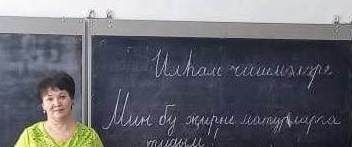 Илһам чишмәләре
Мин бу җирне матурларга
тудым